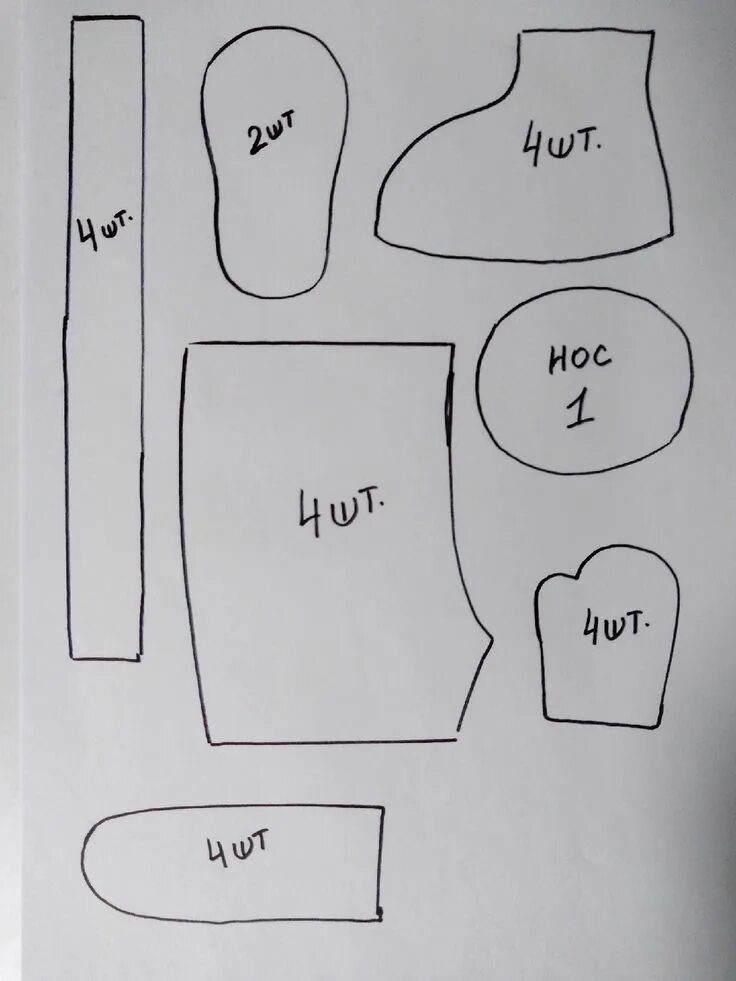 2шт
4шт.
4шт.
НОС
1
4шт.
4шт.
4шт